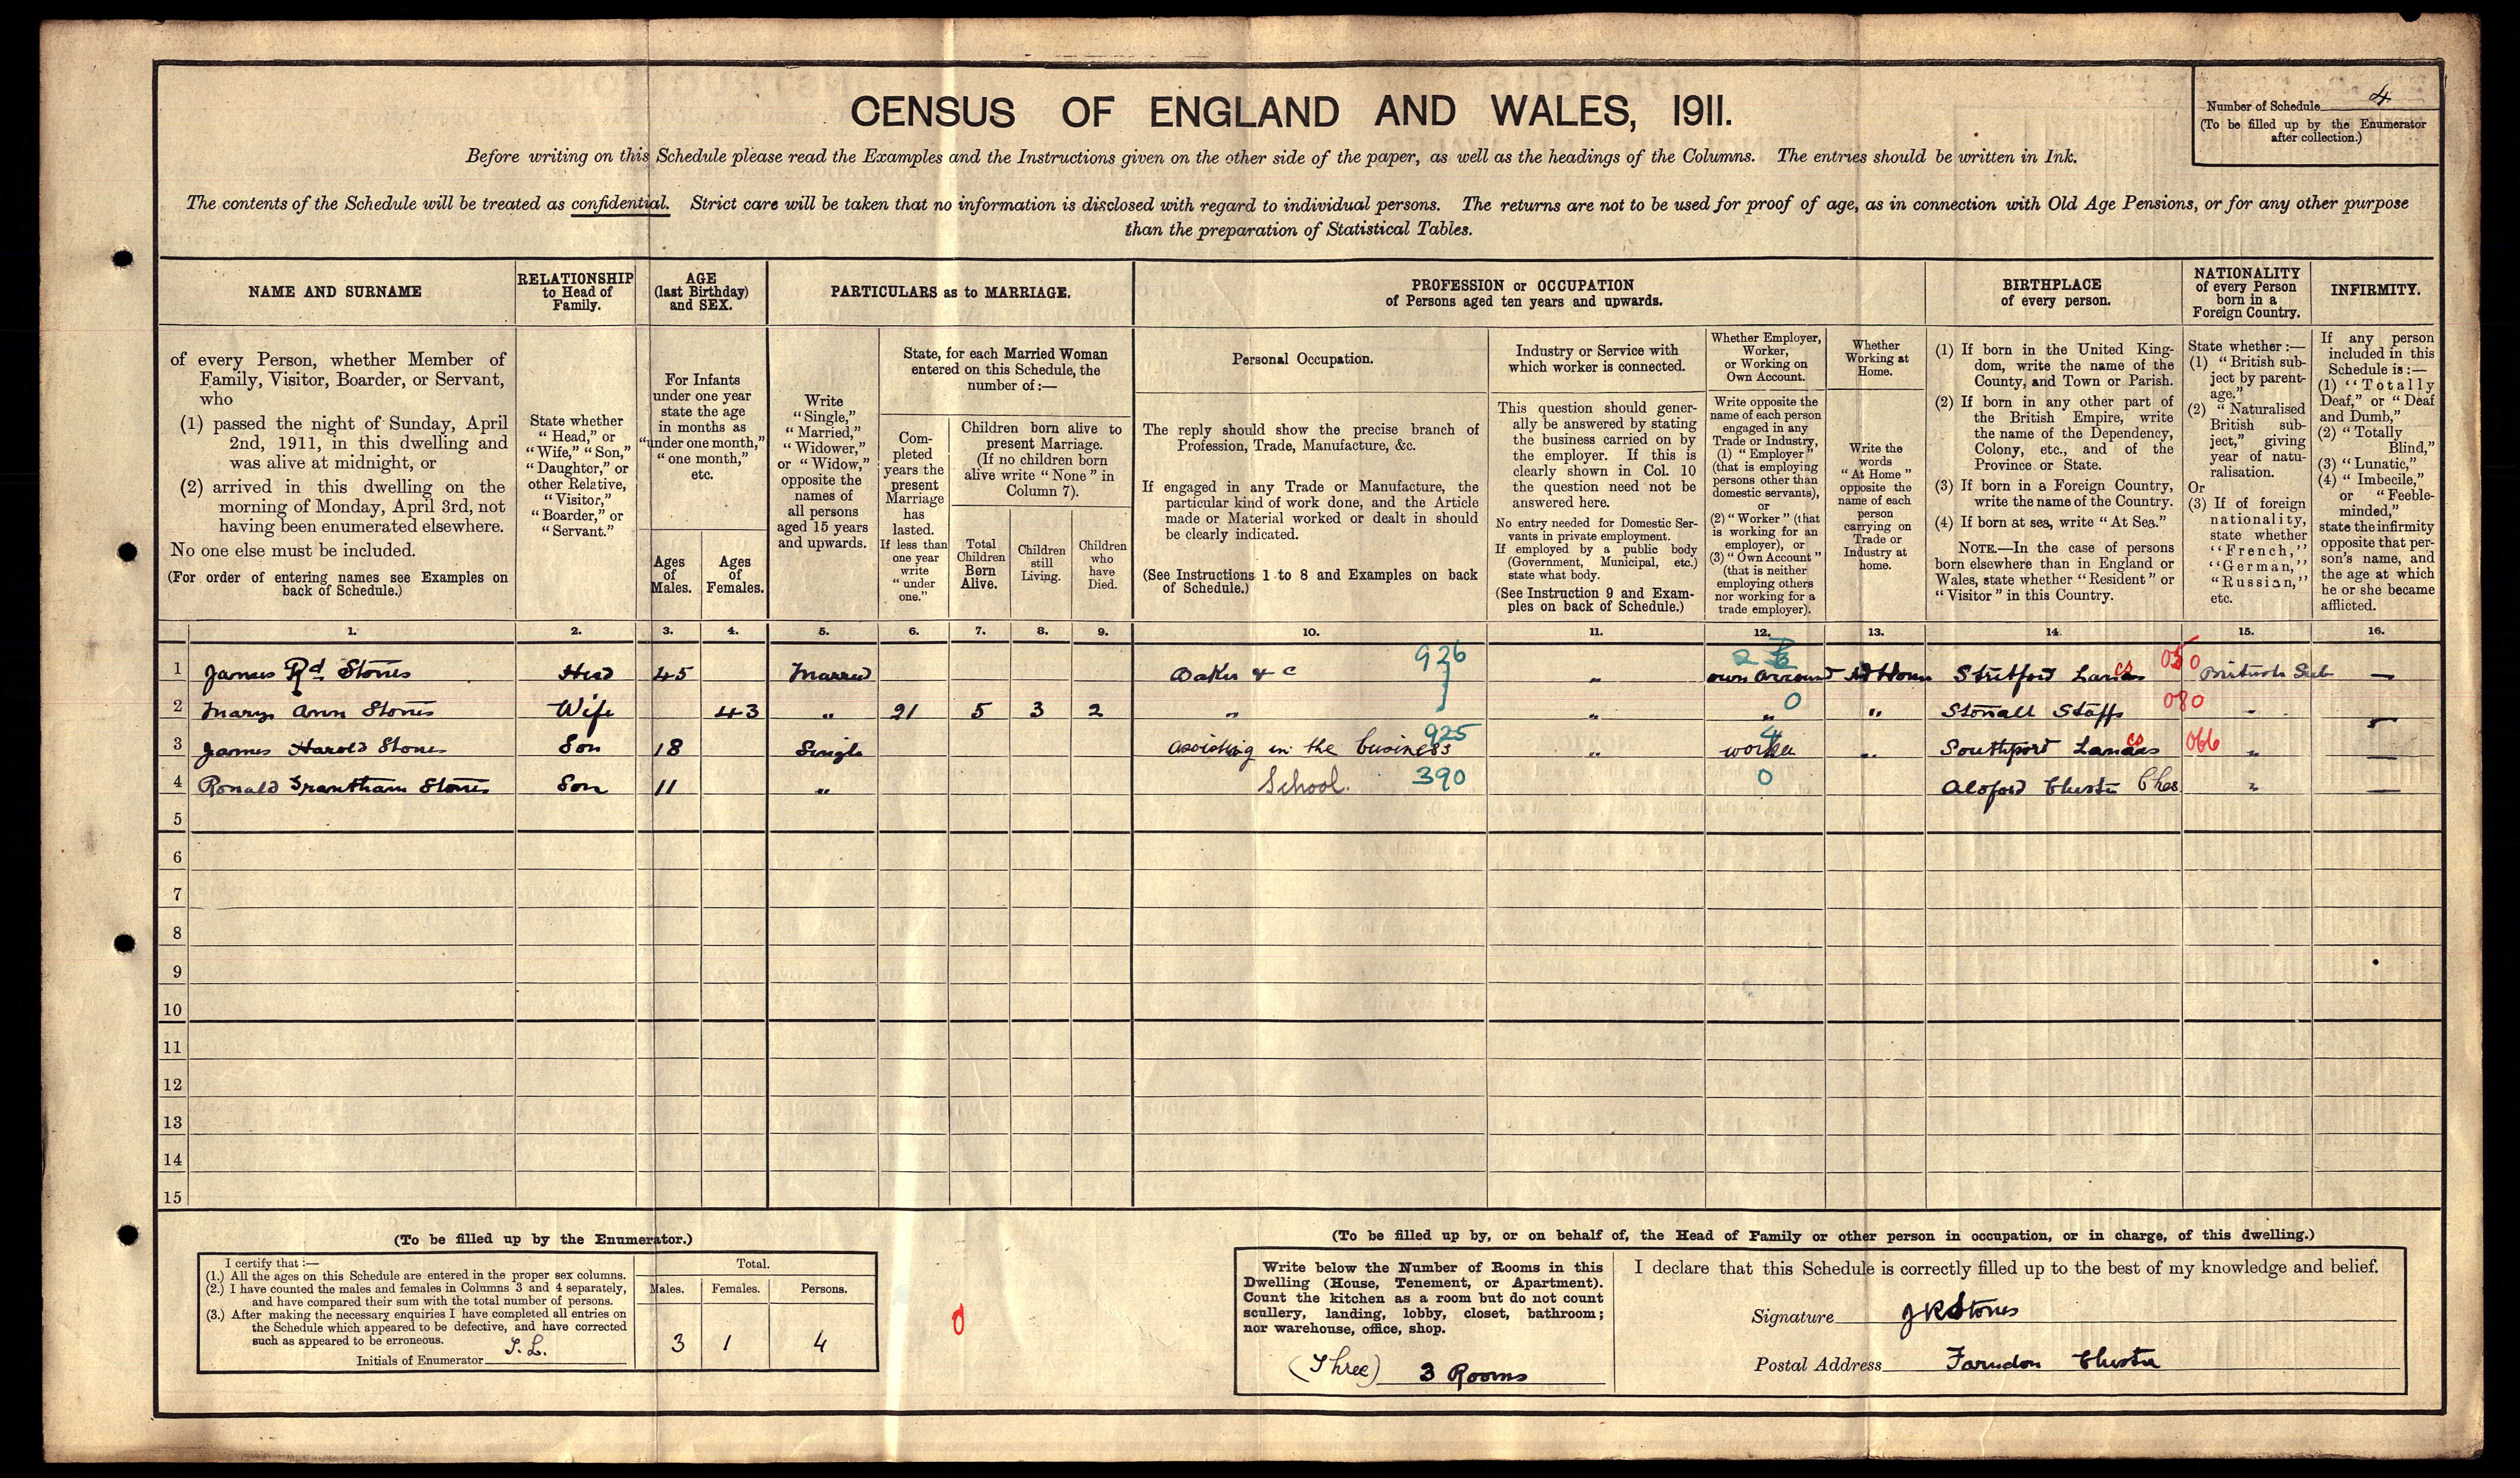 CENSUS OF ENGLAND AND WALES, 1911.
Number of Schedule 4
(To be filled up by the Enumerator
after collection.)
Before writing on this Schedule please read the Examples and the Instructions given on the other side of the paper, as well as the headings of the Columns. The entries should be written in Ink.
The contents of the Schedule will be treated as confidential. Strict care will be taken that no information is disclosed with regard to individual persons. The returns are not to be used for proof of age, as in connection with Old Age Pensions, or for any other purpose
than the preparation of Statistical Tables.
NAME AND SURNAME
RELATIONSHIP
to Head of
Family.
AGE
(last Birthday)
and SEX.
PARTICULARS as to MARRIAGE.
PROFESSION or OCCUPATION
of Persons aged ten years and upwards.
BIRTHPLACE
of every person.
NATIONALITY
of every Person
born in a
Foreign Country.
INFIRMITY.
of every Person, whether Member of
Family, Visitor, Boarder, or Servant,
who
(1) passed the night of Sunday, April
2nd, 1911, in this dwelling and
was alive at midnight, or
(2) arrived in this dwelling on the
morning of Monday, April 3rd, not
having been enumerated elsewhere.
No one else must be included.
(For order of entering names see Examples on
back of Schedule.)
State whether
“Head,” or
“Wife,” “Son,”
“Daughter,” or
other Relative,
“Visitor,”
“Boarder,” or
“Servant.”
For Infants
under one year
state the age
in months as
“under one month,”
“one month,”
etc.
Ages
of
Males.
Ages
of
Females.
Write
“Single,”
“Married,”
“Widower,”
or “Widow,”
opposite the
names of
all persons
aged 15 years
and upwards.
State, for each Married Woman
entered on this Schedule, the
number of:—
Com-
pleted
years the
present
Marriage
has
lasted.
If less than
one year
write
“under
one.”
Children born alive to
present Marriage.
(If no children born
alive write “None” in
Column 7).
Total
Children
Born
Alive.
Children
still
Living.
Children
who
have
Died.
Personal Occupation.
The reply should show the precise branch of
Profession, Trade, Manufacture, &c.
If engaged in any Trade or Manufacture, the
particular kind of work done, and the Article
made or Material worked or dealt in should
be clearly indicated.
(See Instructions 1 to 8 and Examples on back
of Schedule.)
Industry or Service with
which worker is connected.
This question should gener-
ally be answered by stating
the business carried on by
the employer. If this is
clearly shown in Col. 10
the question need not be
answered here.
No entry needed for Domestic Ser-
vants in private employment.
If employed by a public body
(Government, Municipal, etc.)
state what body.
(See Instruction 9 and Exam-
ples on back of Schedule.)
Whether Employer,
Worker,
or Working on
Own Account.
Write opposite the
name of each person
engaged in any
Trade or Industry,
(1) “Employer”
(that is employing
persons other than
domestic servants),
or
(2) “Worker” (that
is working for an
employer), or
(3) “Own Account”
(that is neither
employing others
nor working for a
trade employer).
Whether
Working at
Home.
Write the
words
“At Home”
opposite the
name of each
person
carrying on
Trade or
Industry at
home.
(1) If born in the United King-
dom, write the name of the
County, and Town or Parish.
(2) If born in any other part of
the British Empire, write
the name of the Dependency,
Colony, etc., and of the
Province or State.
(3) If born in a Foreign Country,
write the name of the Country.
(4) If born at sea, write “At Sea.”
NOTE.—In the case of persons
born elsewhere than in England or
Wales, state whether “Resident” or
“Visitor” in this Country.
State whether:—
(1) “British sub-
ject by parent-
age.”
(2) “Naturalised
British sub-
ject,” giving
year of natu-
ralisation.
Or
(3) If of foreign
nationality,
state whether
“French,”
“German,”
“Russian,”
etc.
If any person
included in this
Schedule is:—
(1) “Totally
Deaf,” or “Deaf
and Dumb,”
(2) “Totally
Blind,”
(3) “Lunatic,”
(4) “Imbecile,”
or “Feeble-
minded,”
state the infirmity
opposite that per-
son’s name, and
the age at which
he or she became
afflicted.
1. 2. 3. 4. 5. 6. 7. 8. 9. 10. 11. 12. 13. 14. 15. 16.
1 James Rd Stones Head 45 Married Baker & c 926 „ own account At Home Stretford Lancs 050 British Sub —
2 Mary Ann Stones Wife 43 „ 21 5 3 2 „ „ „ 0 „ Stonall Staffs 080 „ —
3 James Harold Stones Son 18 Single assisting in the business 925 „ worker 4 „ Southport Lancs 066 „ —
4 Ronald Grantham Stones Son 11 „ School. 390 0 Aldford Chester Ches „ —
5
6
7
8
9
10
11
12
13
14
15
(To be filled up by the Enumerator.)
I certify that:—
(1.) All the ages on this Schedule are entered in the proper sex columns.
(2.) I have counted the males and females in Columns 3 and 4 separately,
and have compared their sum with the total number of persons.
(3.) After making the necessary enquiries I have completed all entries on
the Schedule which appeared to be defective, and have corrected
such as appeared to be erroneous.
Initials of Enumerator
Total.
Males. Females. Persons.
3 1 4
(To be filled up by, or on behalf of, the Head of Family or other person in occupation, or in charge, of this dwelling.)
Write below the Number of Rooms in this
Dwelling (House, Tenement, or Apartment).
Count the kitchen as a room but do not count
scullery, landing, lobby, closet, bathroom;
nor warehouse, office, shop.
(Three) 3 Rooms
I declare that this Schedule is correctly filled up to the best of my knowledge and belief.
Signature JRStones
Postal Address Farndon Chester